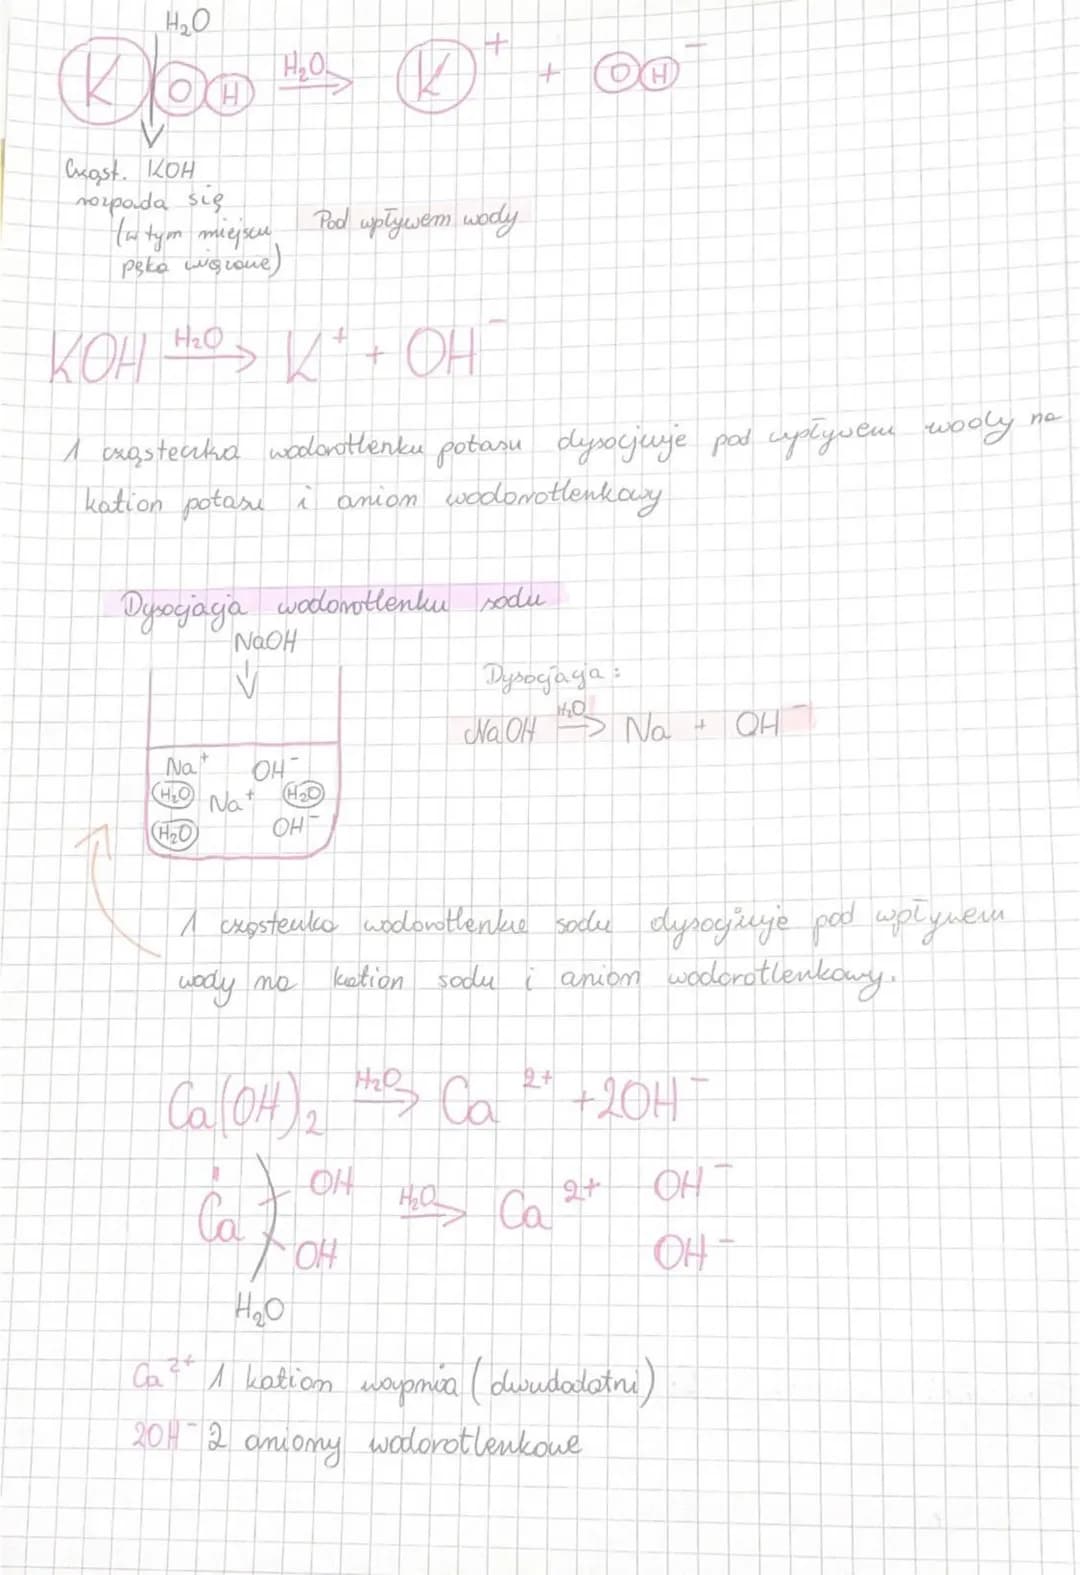 H₂O
K O H H₂O→ K⁺ + O H⁻
Cząst. KOH
rozpada się
(w tym miejscu
pęka wiązanie)
Pod wpływem wody
KOH H₂O→ K⁺ + OH⁻
1 cząsteczka wodorotlenku potasu dysocjuje pod wpływem wody na
kation potasu i anion wodorotlenkowy
Dysocjacja wodorotlenku sodu
NaOH
Dysocjacja:
NaOH H₂O→ Na + OH⁻
Na⁺ OH⁻
H₂O Na⁺ H₂O
H₂O OH⁻
1 cząsteczka wodorotlenku sodu dysocjuje pod wpływem
wody na kation sodu i anion wodorotlenkowy.
Ca(OH)₂ H₂O→ Ca²⁺ + 2OH⁻
Ca OH H₂O→ Ca²⁺ OH⁻
OH OH⁻
H₂O
Ca²⁺ 1 kation wapnia (dwudodatni)
2OH⁻ 2 aniony wodorotlenkowe